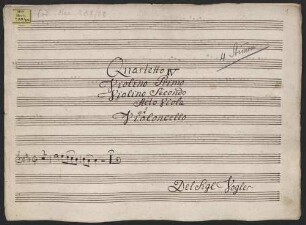 Quartetto IV
Violino Primo
Violino Secondo
Alto Viola
et
Violoncello
Del Sig: Vogler